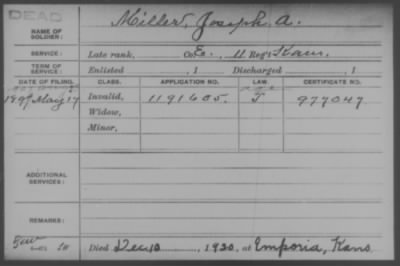 DEAD
Miller, Joseph A.
NAME OF SOLDIER:
SERVICE: Late rank, Co. E., 11 Reg't Kans.
TERM OF SERVICE: Enlisted , 1 Discharged , 1
DATE OF FILING. CLASS. APPLICATION NO. LAW. CERTIFICATE NO.
1897 May 17 Invalid, 1191605. J 977047
Widow,
Minor,
ADDITIONAL SERVICES:
REMARKS:
Died Dec. 10, 1920, at Emporia, Kans.